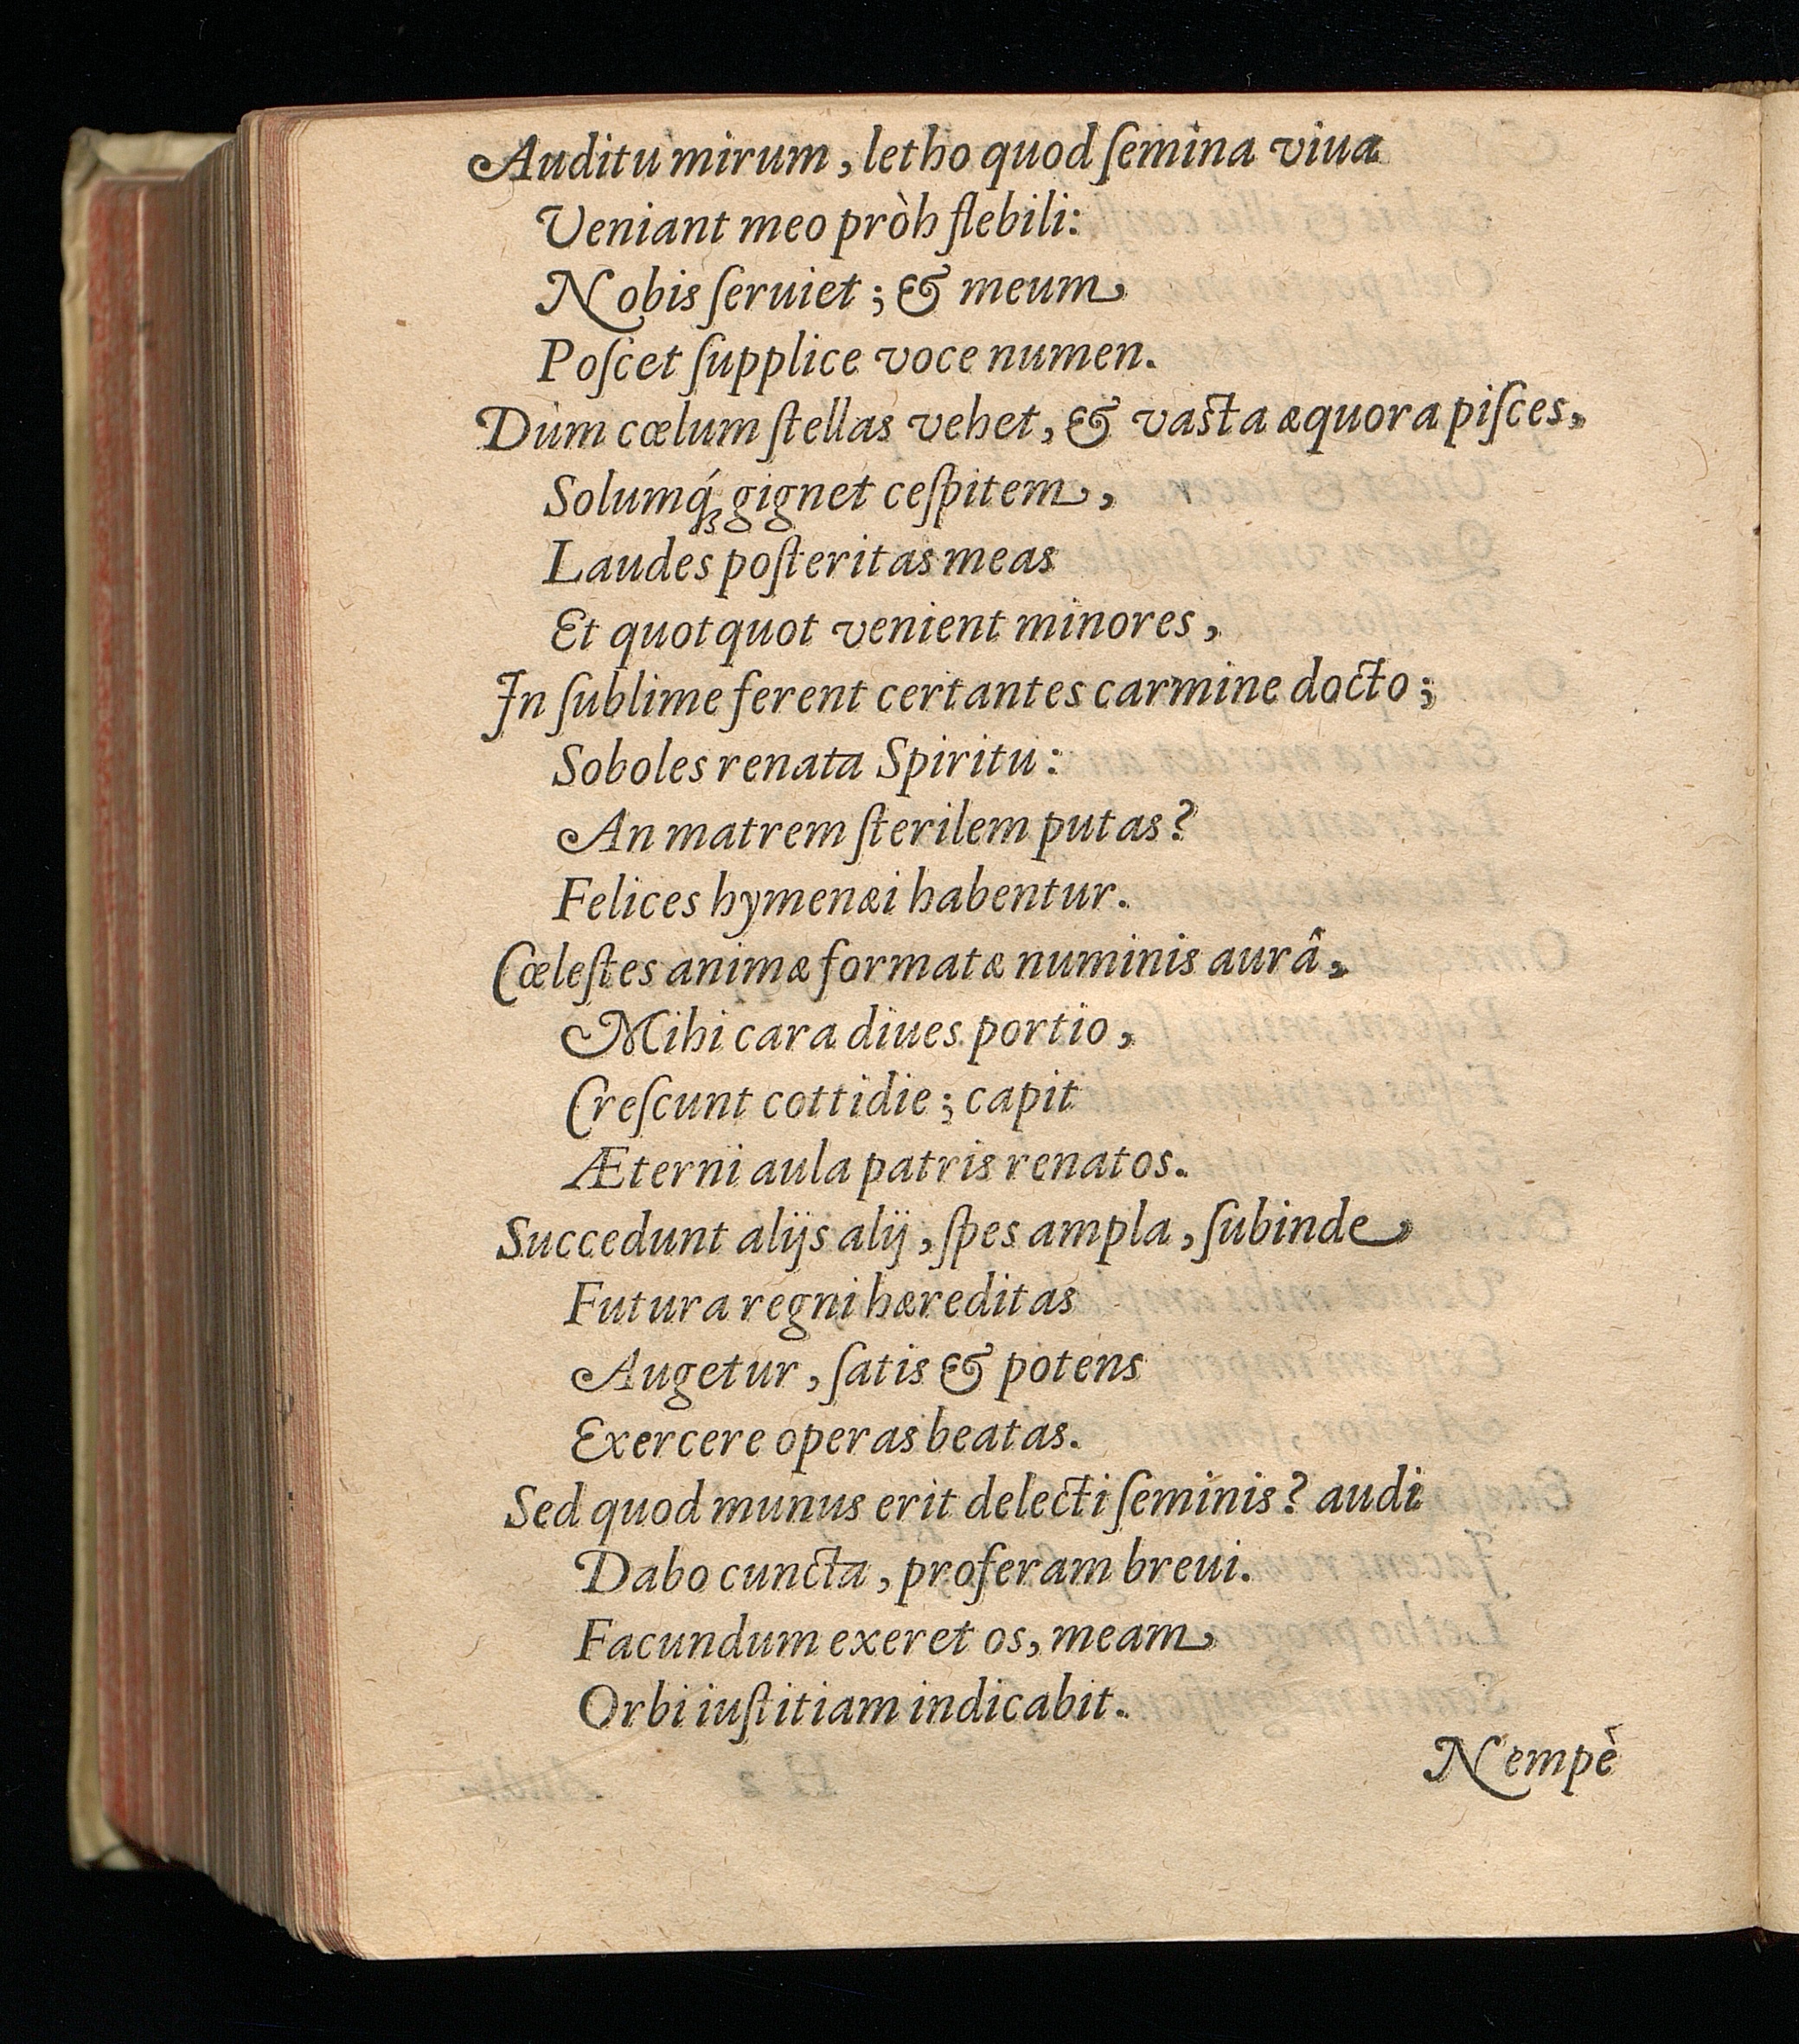 Auditu mirum, letho quod ſemina viua
Veniant meo pròh flebili:
Nobis ſeruiet; & meum
Poſcet ſupplice voce numen.
Dum cœlum ſtellas vehet, & vaſta æquora piſces,
Solumq́ꝫ gignet ceſpitem,
Laudes poſteritas meas
Et quotquot venient minores,
In ſublime ferent certantes carmine docto;
Soboles renata Spiritu:
An matrem ſterilem putas?
Felices hymenæi habentur.
Cœleſtes animæ formatæ numinis aurâ,
Mihi cara diues portio,
Creſcunt cottidie; capit
Æterni aula patris renatos.
Succedunt alijs alij, ſpes ampla, ſubinde
Futura regni hæreditas
Augetur, ſatis & potens
Exercere operas beatas.
Sed quod munus erit delecti ſeminis? audi
Dabo cuncta, proferam breui.
Facundum exeret os, meam
Orbi iuſtitiam indicabit.
Nempè